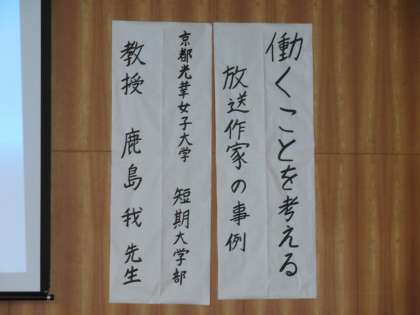 働くことを考える
放送作家の事例
京都光華女子大学 短期大学部
教授 鹿島 我 先生